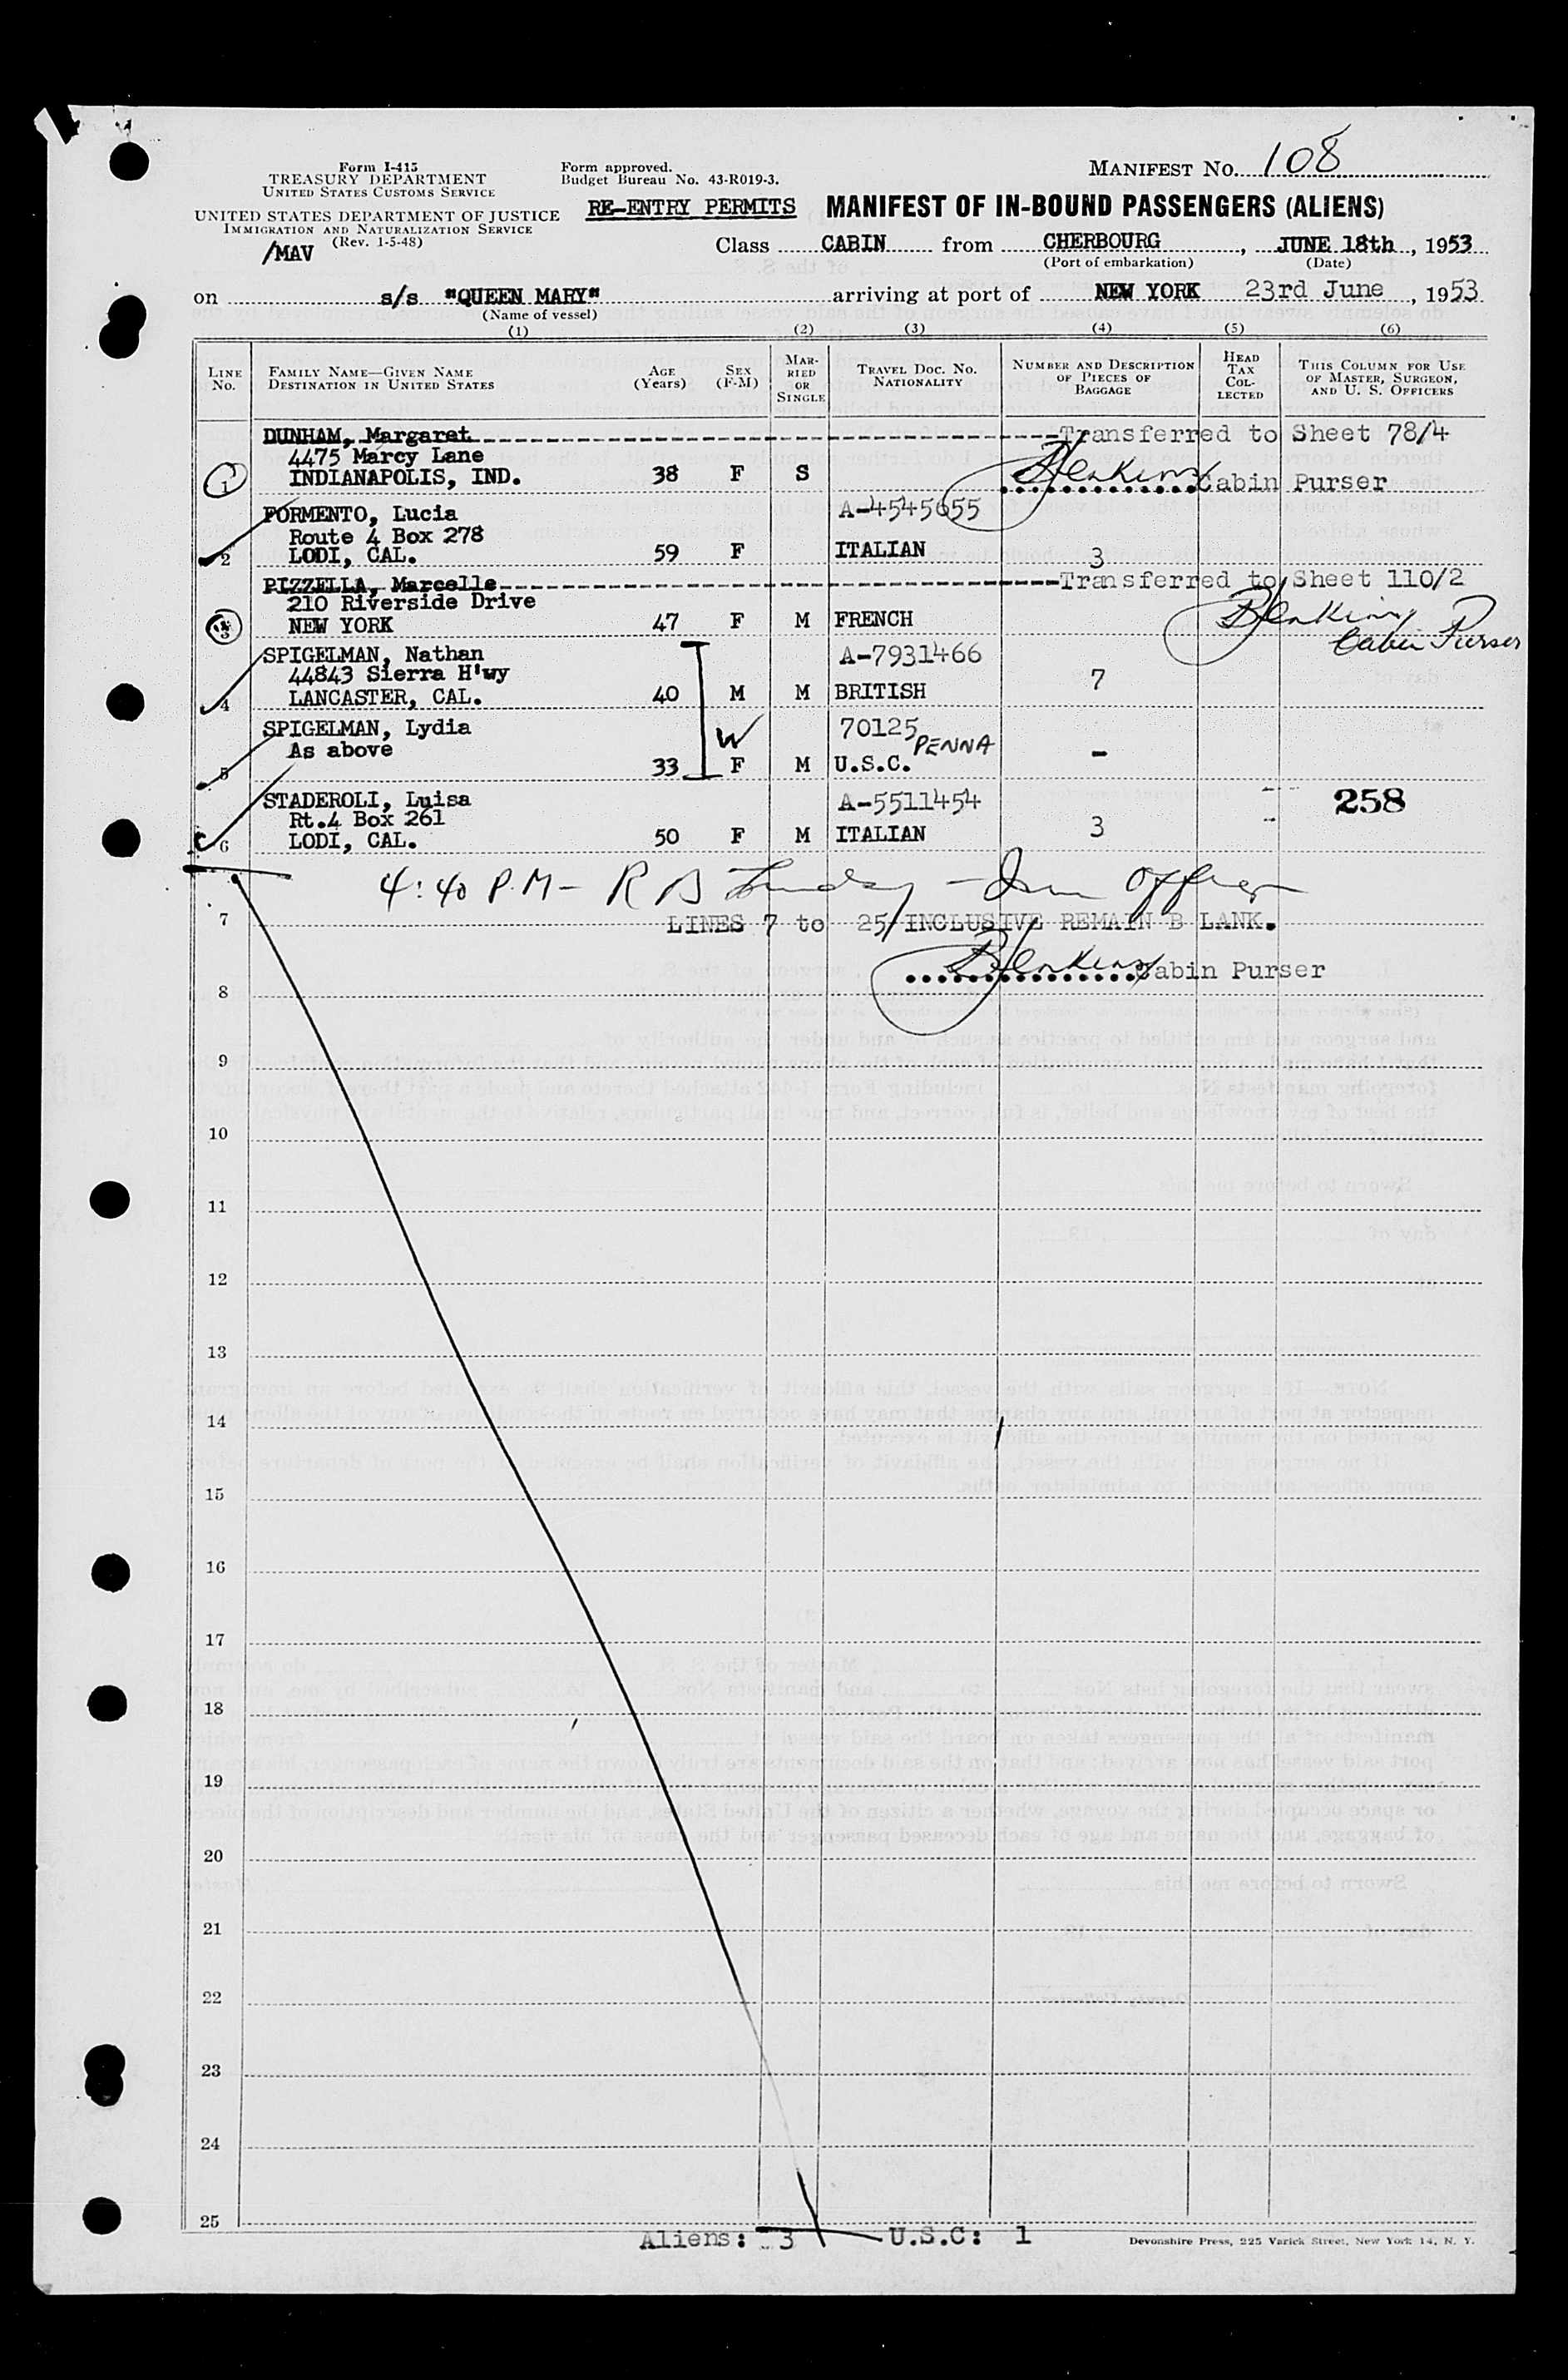 Form I-415
TREASURY DEPARTMENT
UNITED STATES CUSTOMS SERVICE
UNITED STATES DEPARTMENT OF JUSTICE
IMMIGRATION AND NATURALIZATION SERVICE
(Rev. 1-5-48)
/MAV
Form approved.
Budget Bureau No. 43-R019-3.
MANIFEST NO. 108
RE-ENTRY PERMITS MANIFEST OF IN-BOUND PASSENGERS (ALIENS)
Class CABIN from CHERBOURG, JUNE 18th, 1953
(Port of embarkation) (Date)
on s/s "QUEEN MARY" arriving at port of NEW YORK 23rd June, 1953
(Name of vessel)
(1) (2) (3) (4) (5) (6)
LINE NO. FAMILY NAME—GIVEN NAME DESTINATION IN UNITED STATES AGE (Years) SEX (F-M) MARRIED OR SINGLE TRAVEL DOC. NO. NATIONALITY NUMBER AND DESCRIPTION OF PIECES OF BAGGAGE HEAD TAX COLLECTED THIS COLUMN FOR USE OF MASTER, SURGEON, AND U. S. OFFICERS
DUNHAM, Margaret Transferred to Sheet 78/4
4475 Marcy Lane
1 INDIANAPOLIS, IND. 38 F S Cabin Purser
FORMENTO, Lucia A-4545655
Route 4 Box 278
2 LODI, CAL. 59 F ITALIAN 3
PIZZELLA, Marcelle Transferred to Sheet 110/2
210 Riverside Drive
3 NEW YORK 47 F M FRENCH
Cabin Purser
SPIGELMAN, Nathan A-7931466
44843 Sierra H'wy
4 LANCASTER, CAL. 40 M M BRITISH 7
SPIGELMAN, Lydia 70125
As above W PENNA
5 33 F M U.S.C. -
STADEROLI, Luisa A-5511454 258
Rt.4 Box 261
6 LODI, CAL. 50 F M ITALIAN 3
4:40 P.M - R B - Imm Officer
7 LINES 7 to 25/INCLUSIVE REMAIN B LANK.
Cabin Purser
8
9
10
11
12
13
14
15
16
17
18
19
20
21
22
23
24
25
Aliens: 3 U.S.C: 1
Devonshire Press, 225 Varick Street, New York 14, N. Y.